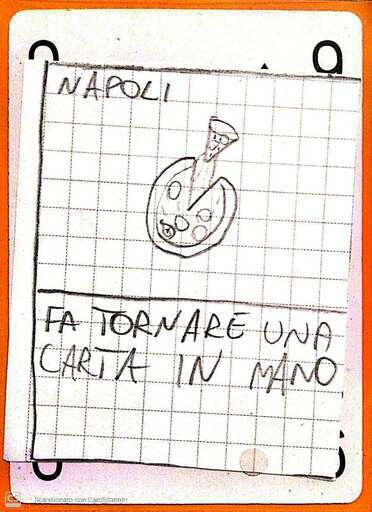 NAPOLI
FA TORNARE UNA
CARTA IN MANO
Scansionato con CamScanner